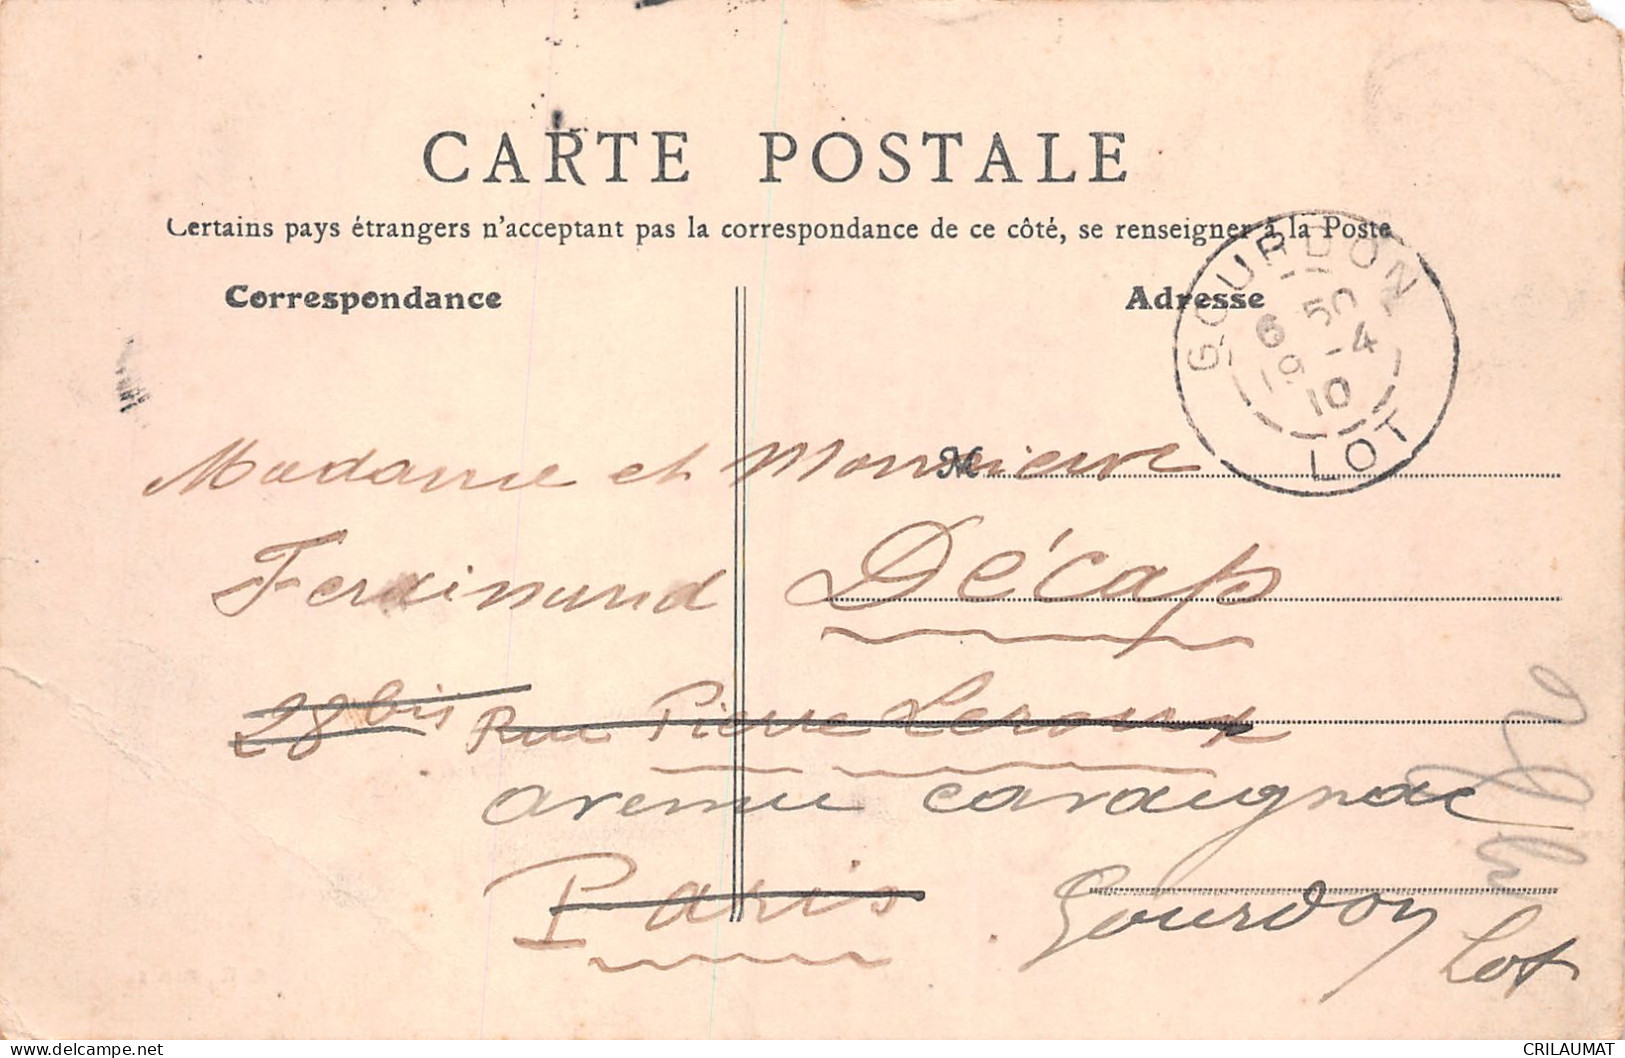 CARTE POSTALE
Certains pays étrangers n'acceptant pas la correspondance de ce côté, se renseigner à la Poste
Correspondance
Adresse
GOURDON
6 50
19 -4
10
LOT
M
Madame et Monsieur
Ferdinand Décap
28 bis Rue Pierre Leroux
avenue Cavaignac
Paris Gourdon
Lot
delcampe.net
CRILAUMAT